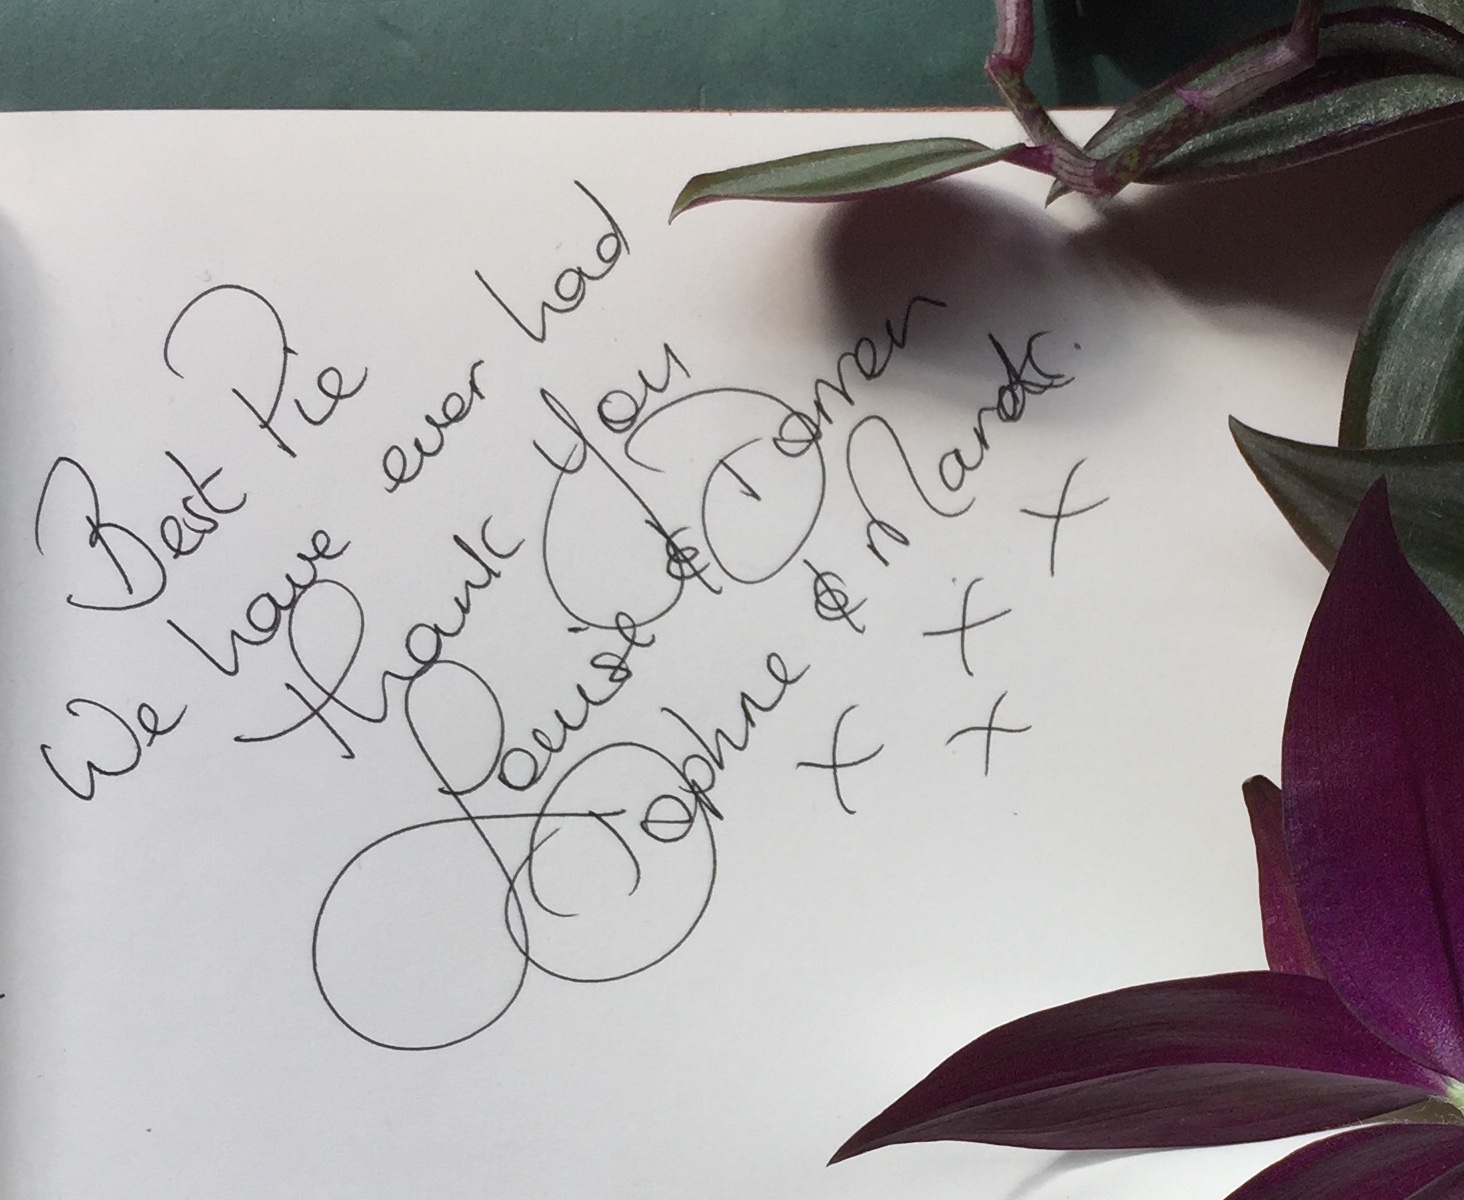 Best Pie
We have ever had
Thank You
Louise & Darren
Daphne & Mark.
x x x x